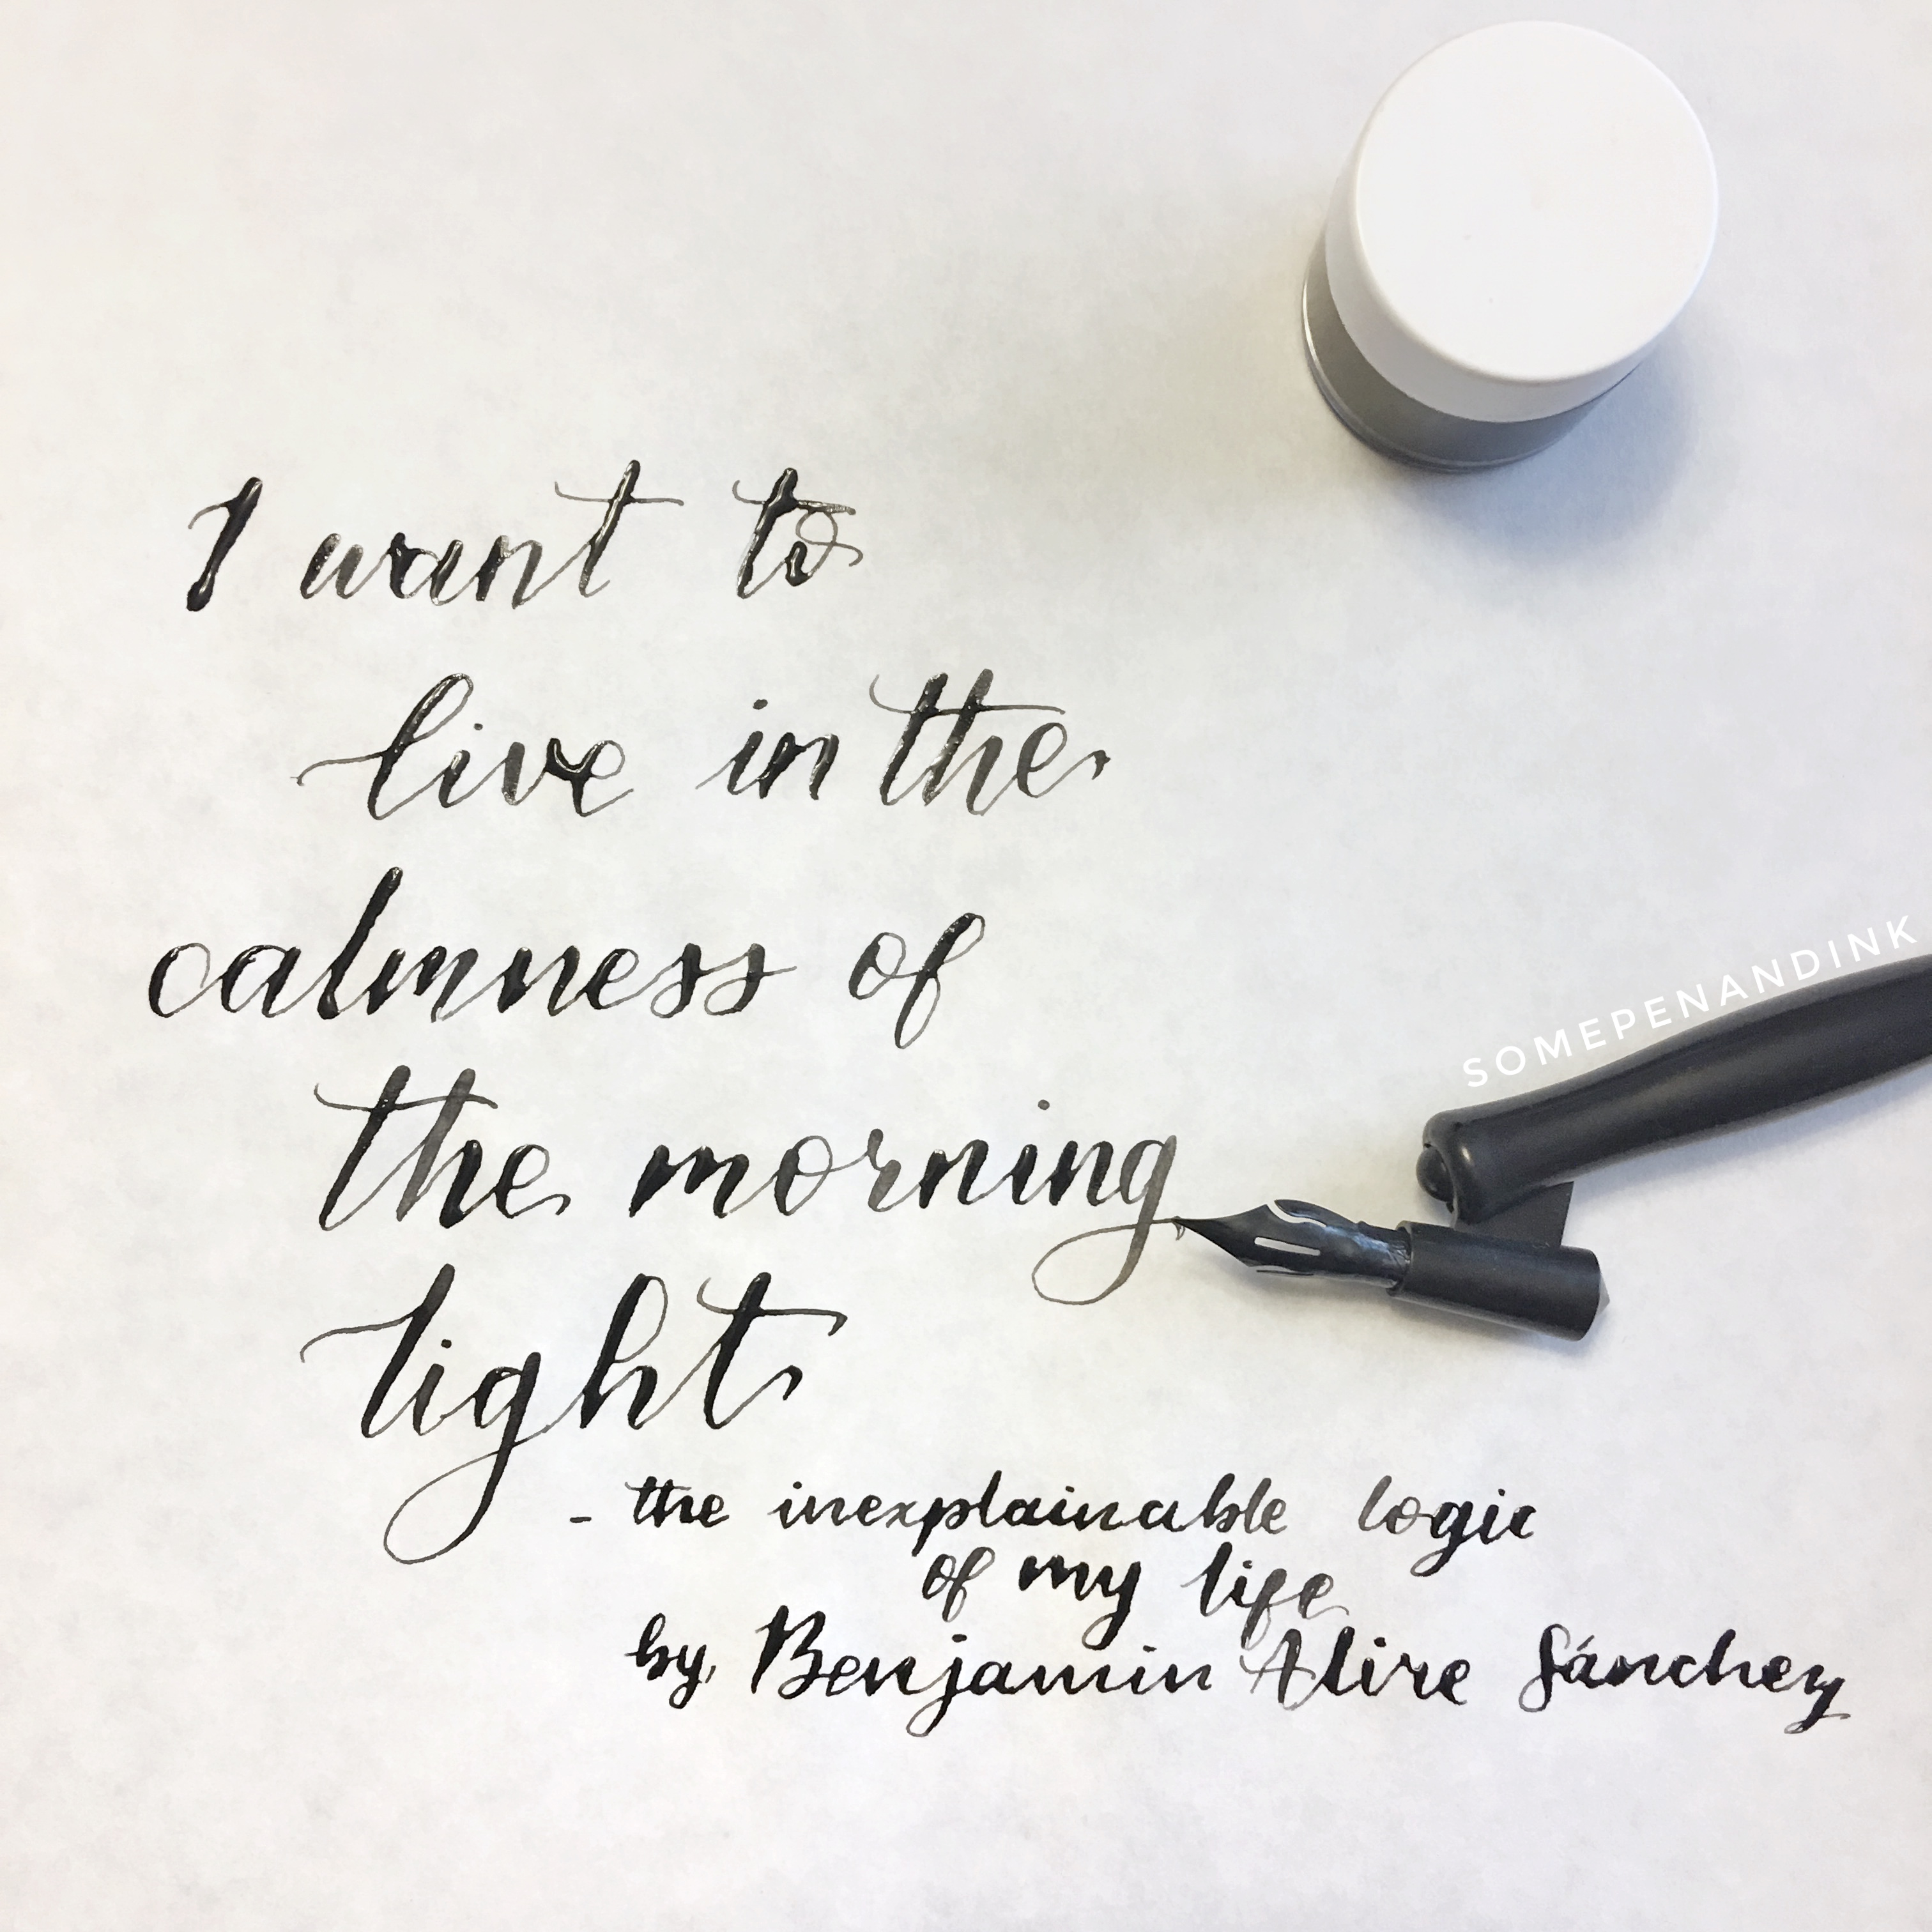 I want to
live in the
calmness of
the morning
light
- the inexplainable logic
of my life
by Benjamin Alire Sánchez
SOMEPENANDINK